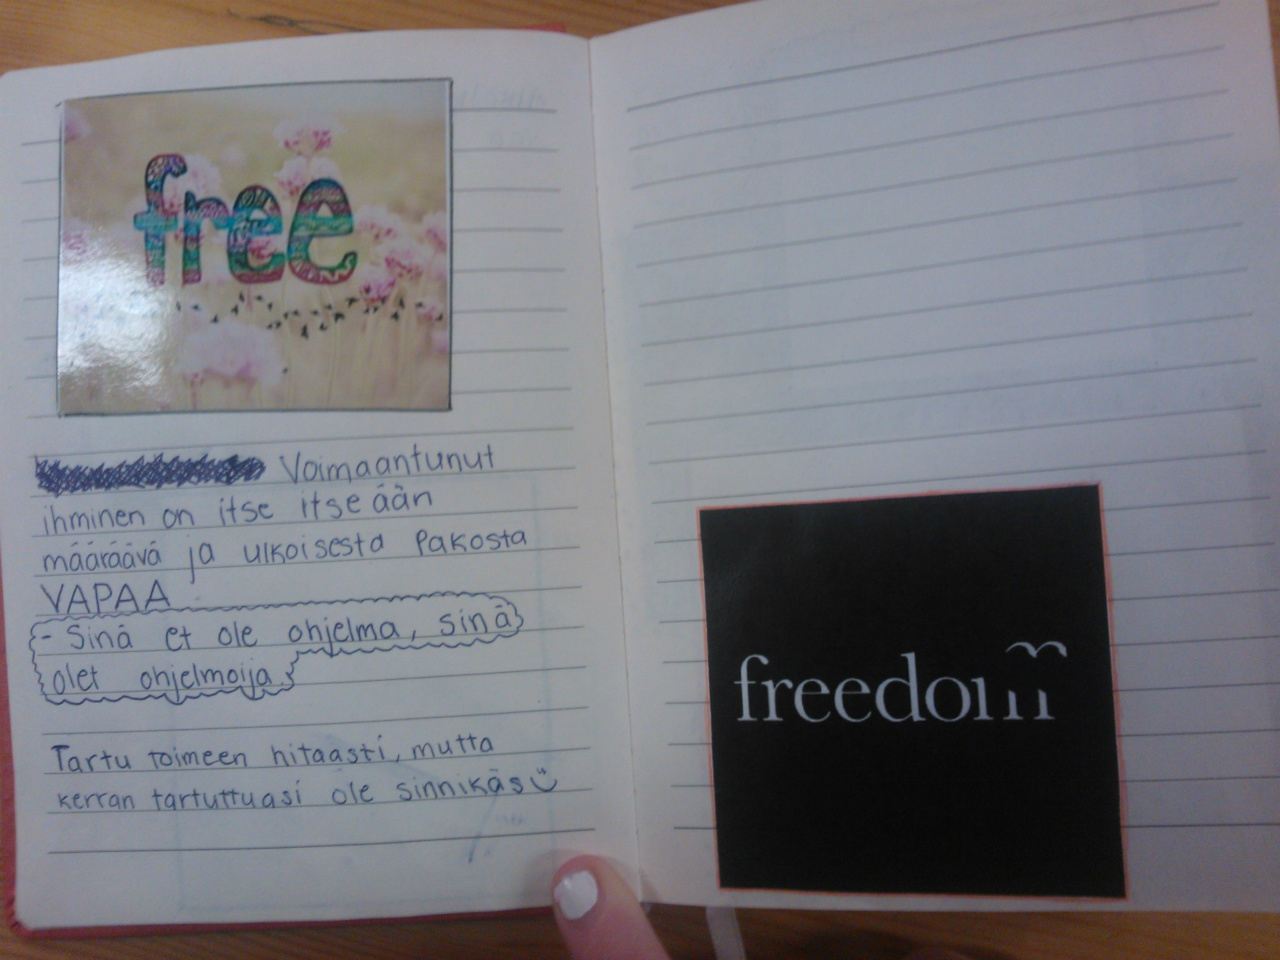 free
Voimaantunut
ihminen on itse itseään
määräävä ja ulkoisesta pakosta
VAPAA
- Sinä et ole ohjelma, sinä
olet ohjelmoija.
Tartu toimeen hitaasti, mutta
kerran tartuttuasi ole sinnikäs
freedom